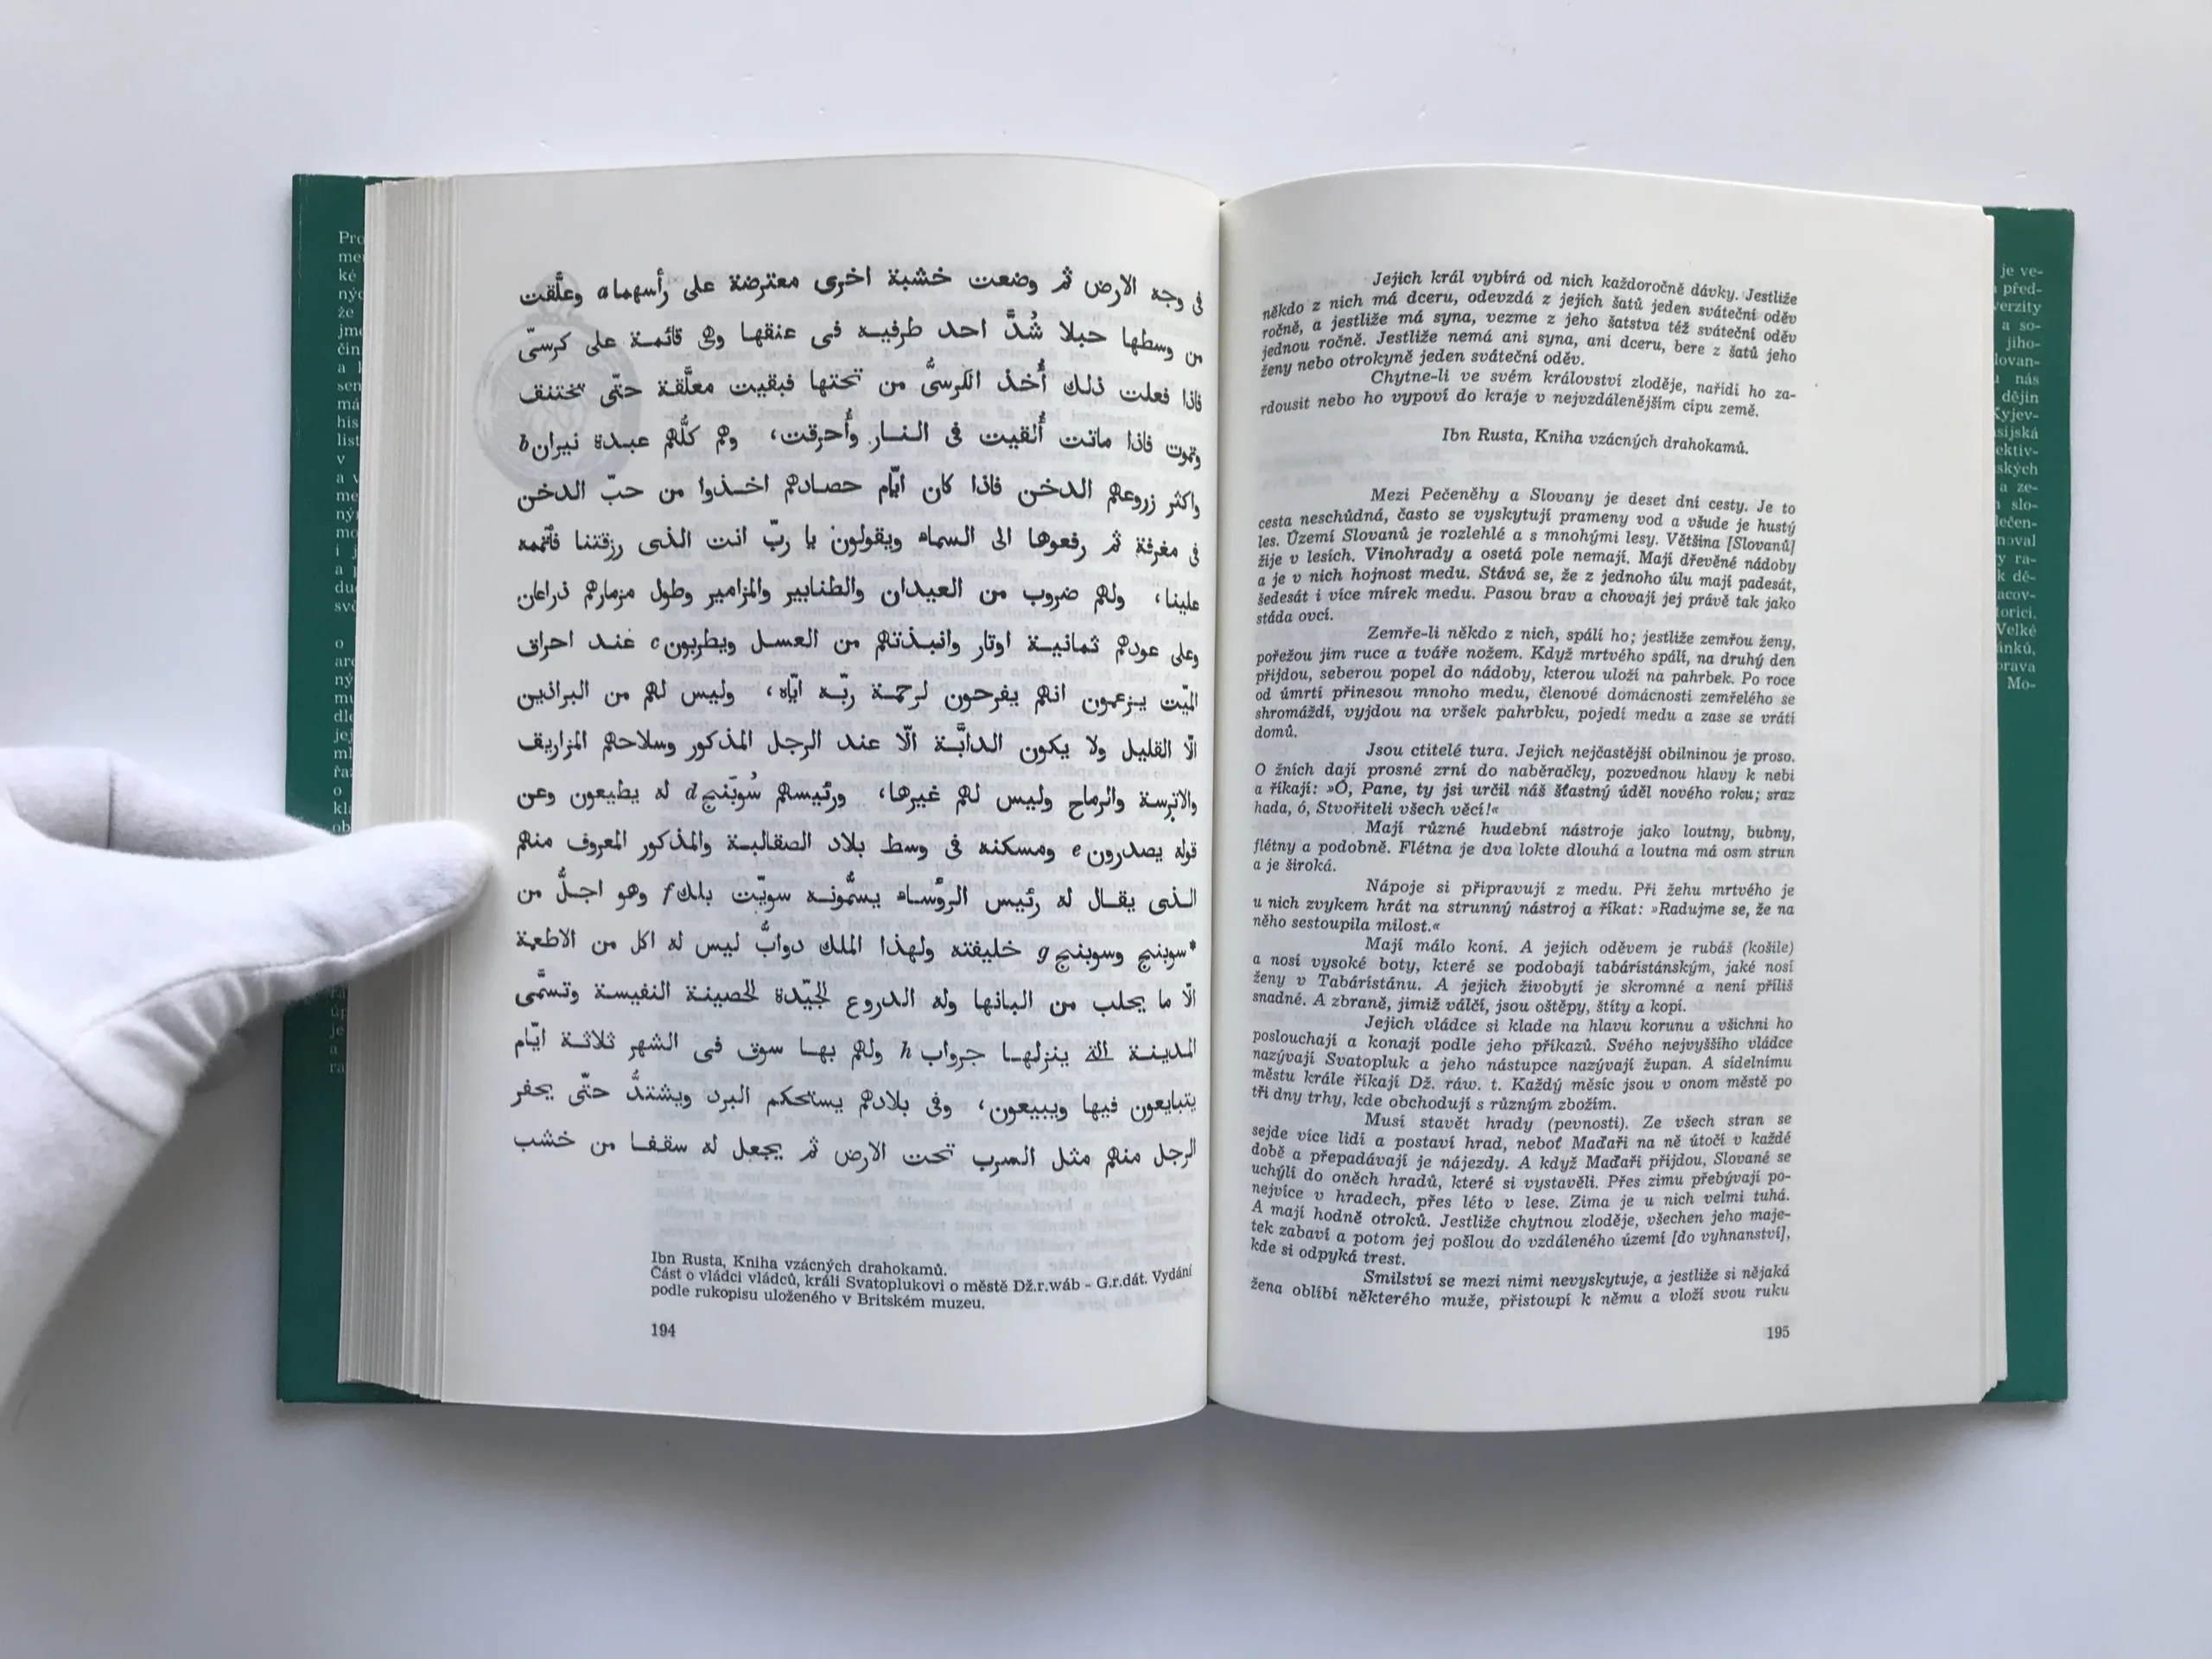 فى وجه الارض ثم وضعت خشبة اخرى معترضة على رأسهما a وعلّقت
من وسطها حبلا شُدَّ احد طرفيه فى عنقها وهى قائمة على كرسىّ
فاذا فعلت ذلك أُخذ الكرسىُّ من تحتها فبقيت معلَّقة حتّى تختنف
وتموت فاذا ماتت أُلقيت فى النار وأُحرقت، وهم كلُّهم عبدة نيران b
واكثر زروعهم الدخن فاذا كان ايّام حصادهم اخذوا من حبّ الدخن
فى مغرفة ثم رفعوها الى السماء ويقولون يا ربّ انت الذى رزقتنا فأتممه
علينا، ولهم ضروب من العيدان والطنابير والمزامير وطول مزمارهم ذراعان
وعلى عودهم ثمانية اوتار وانبذتهم من العسل ويطربون c عند احراق
الميّت يزعمون انهم يفرحون لرحمة ربّه ايّاه، وليس لهم من البراذين
الّا القليل ولا يكون الدابَّة الّا عند الرجل المذكور وسلاحهم المزاريق
والاترسة والرماح وليس لهم غيرها، ورئيسهم سُوبَنج d له يطيعون وعن
قوله يصدرون e ومسكنه فى وسط بلاد الصقالبة والمذكور المعروف منهم
الذى يقال له رئيس الرؤساء يسمُّونه سويّت بلك f وهو اجلُّ من
*سوبنج وسوبنج g خليفته ولهذا الملك دوابُّ ليس له اكل من الاطعمة
الّا ما يحلب من البانها وله الدروع الجيّدة الحصينة النفيسة وتسمَّى
المدينة التى ينزلها جرواب h ولهم بها سوق فى الشهر ثلاثة ايّام
يتبايعون فيها ويبيعون، وفى بلادهم يستحكم البرد ويشتدُّ حتّى يحفر
الرجل منهم مثل السرب تحت الارض ثم يجعل له سقفا من خشب
Ibn Rusta, Kniha vzácných drahokamů.
Část o vládci vládců, králi Svatoplukovi o městě Dž.r.wáb - G.r.dát. Vydání
podle rukopisu uloženého v Britském muzeu.
194
Jejich král vybírá od nich každoročně dávky. Jestliže
někdo z nich má dceru, odevzdá z jejích šatů jeden sváteční oděv
ročně, a jestliže má syna, vezme z jeho šatstva též sváteční oděv
jednou ročně. Jestliže nemá ani syna, ani dceru, bere z šatů jeho
ženy nebo otrokyně jeden sváteční oděv.
Chytne-li ve svém království zloděje, nařídí ho za-
rdousit nebo ho vypoví do kraje v nejvzdálenějším cípu země.
Ibn Rusta, Kniha vzácných drahokamů.
Mezi Pečeněhy a Slovany je deset dní cesty. Je to
cesta neschůdná, často se vyskytují prameny vod a všude je hustý
les. Území Slovanů je rozlehlé a s mnohými lesy. Většina [Slovanů]
žije v lesích. Vinohrady a osetá pole nemají. Mají dřevěné nádoby
a je v nich hojnost medu. Stává se, že z jednoho úlu mají padesát,
šedesát i více mírek medu. Pasou brav a chovají jej právě tak jako
stáda ovcí.
Zemře-li někdo z nich, spálí ho; jestliže zemřou ženy,
pořežou jim ruce a tváře nožem. Když mrtvého spálí, na druhý den
přijdou, seberou popel do nádoby, kterou uloží na pahrbek. Po roce
od úmrtí přinesou mnoho medu, členové domácnosti zemřelého se
shromáždí, vyjdou na vršek pahrbku, pojedí medu a zase se vrátí
domů.
Jsou ctitelé tura. Jejich nejčastější obilninou je proso.
O žních dají prosné zrní do naběračky, pozvednou hlavy k nebi
a říkají: »Ó, Pane, ty jsi určil náš šťastný úděl nového roku; sraz
hada, ó, Stvořiteli všech věcí!«
Mají různé hudební nástroje jako loutny, bubny,
flétny a podobně. Flétna je dva lokte dlouhá a loutna má osm strun
a je široká.
Nápoje si připravují z medu. Při žehu mrtvého je
u nich zvykem hrát na strunný nástroj a říkat: »Radujme se, že na
něho sestoupila milost.«
Mají málo koní. A jejich oděvem je rubáš (košile)
a nosí vysoké boty, které se podobají tabáristánským, jaké nosí
ženy v Tabáristánu. A jejich živobytí je skromné a není příliš
snadné. A zbraně, jimiž válčí, jsou oštěpy, štíty a kopí.
Jejich vládce si klade na hlavu korunu a všichni ho
poslouchají a konají podle jeho příkazů. Svého nejvyššího vládce
nazývají Svatopluk a jeho nástupce nazývají župan. A sídelnímu
městu krále říkají Dž. ráw. t. Každý měsíc jsou v onom městě po
tři dny trhy, kde obchodují s různým zbožím.
Musí stavět hrady (pevnosti). Ze všech stran se
sejde více lidí a postaví hrad, neboť Maďaři na ně útočí v každé
době a přepadávají je nájezdy. A když Maďaři přijdou, Slované se
uchýlí do oněch hradů, které si vystavěli. Přes zimu přebývají po-
nejvíce v hradech, přes léto v lese. Zima je u nich velmi tuhá.
A mají hodně otroků. Jestliže chytnou zloděje, všechen jeho maje-
tek zabaví a potom jej pošlou do vzdáleného území [do vyhnanství],
kde si odpyká trest.
Smilství se mezi nimi nevyskytuje, a jestliže si nějaká
žena oblíbí některého muže, přistoupí k němu a vloží svou ruku
195